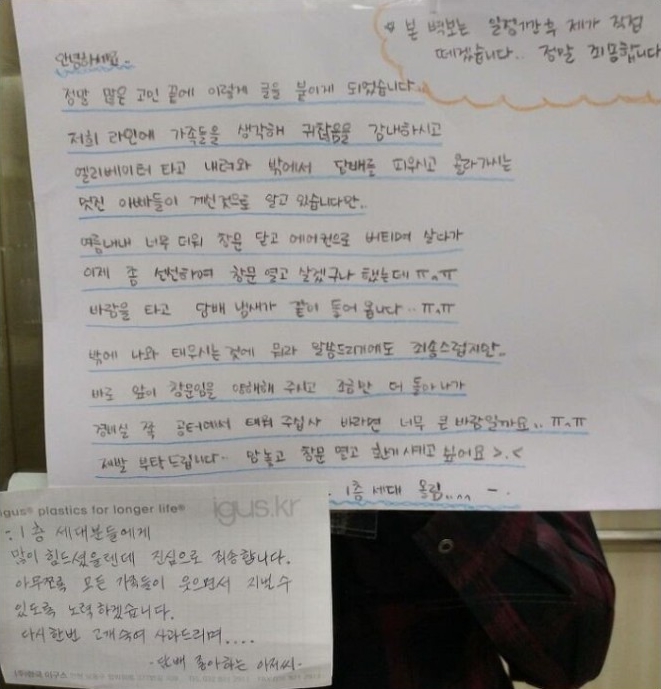 ※ 본 벽보는 일정기간 후 제가 직접
떼겠습니다.. 정말 죄송합니다
안녕하세요..
정말 많은 고민 끝에 이렇게 글을 붙이게 되었습니다..
저희 라인에 가족들을 생각해 귀찮음을 감내하시고
엘리베이터 타고 내려와 밖에서 담배를 피우시고 올라가시는
멋진 아빠들이 계신것으로 알고 있습니다만..
여름내내 너무 더워 창문 닫고 에어컨으로 버티며 살다가
이제 좀 선선하여 창문 열고 살겠구나 했는데 ㅠ.ㅠ
바람을 타고 담배 냄새가 같이 들어 옵니다.. ㅠ.ㅠ
밖에 나와 태우시는 것에 뭐라 말씀드리기에도 죄송스럽지만..
바로 앞이 창문임을 양해해 주시고 조금만 더 돌아 나가
경비실 쪽 공터에서 태워 주십사 바라면 너무 큰 바람일까요.. ㅠ.ㅠ
제발 부탁드립니다.. 맘놓고 창문 열고 환기 시키고 싶어요 >.<
. 1층 세대 올림.... -.
igus® plastics for longer life® igus.kr
-. 1층 세대분들에게
많이 힘드셨을텐데 진심으로 죄송합니다.
아무쪼록 모든 가족들이 웃으면서 지낼 수
있도록 노력하겠습니다.
다시한번 고개숙여 사과드리며....
-담배 좋아하는 아저씨-
(주)한국 이구스